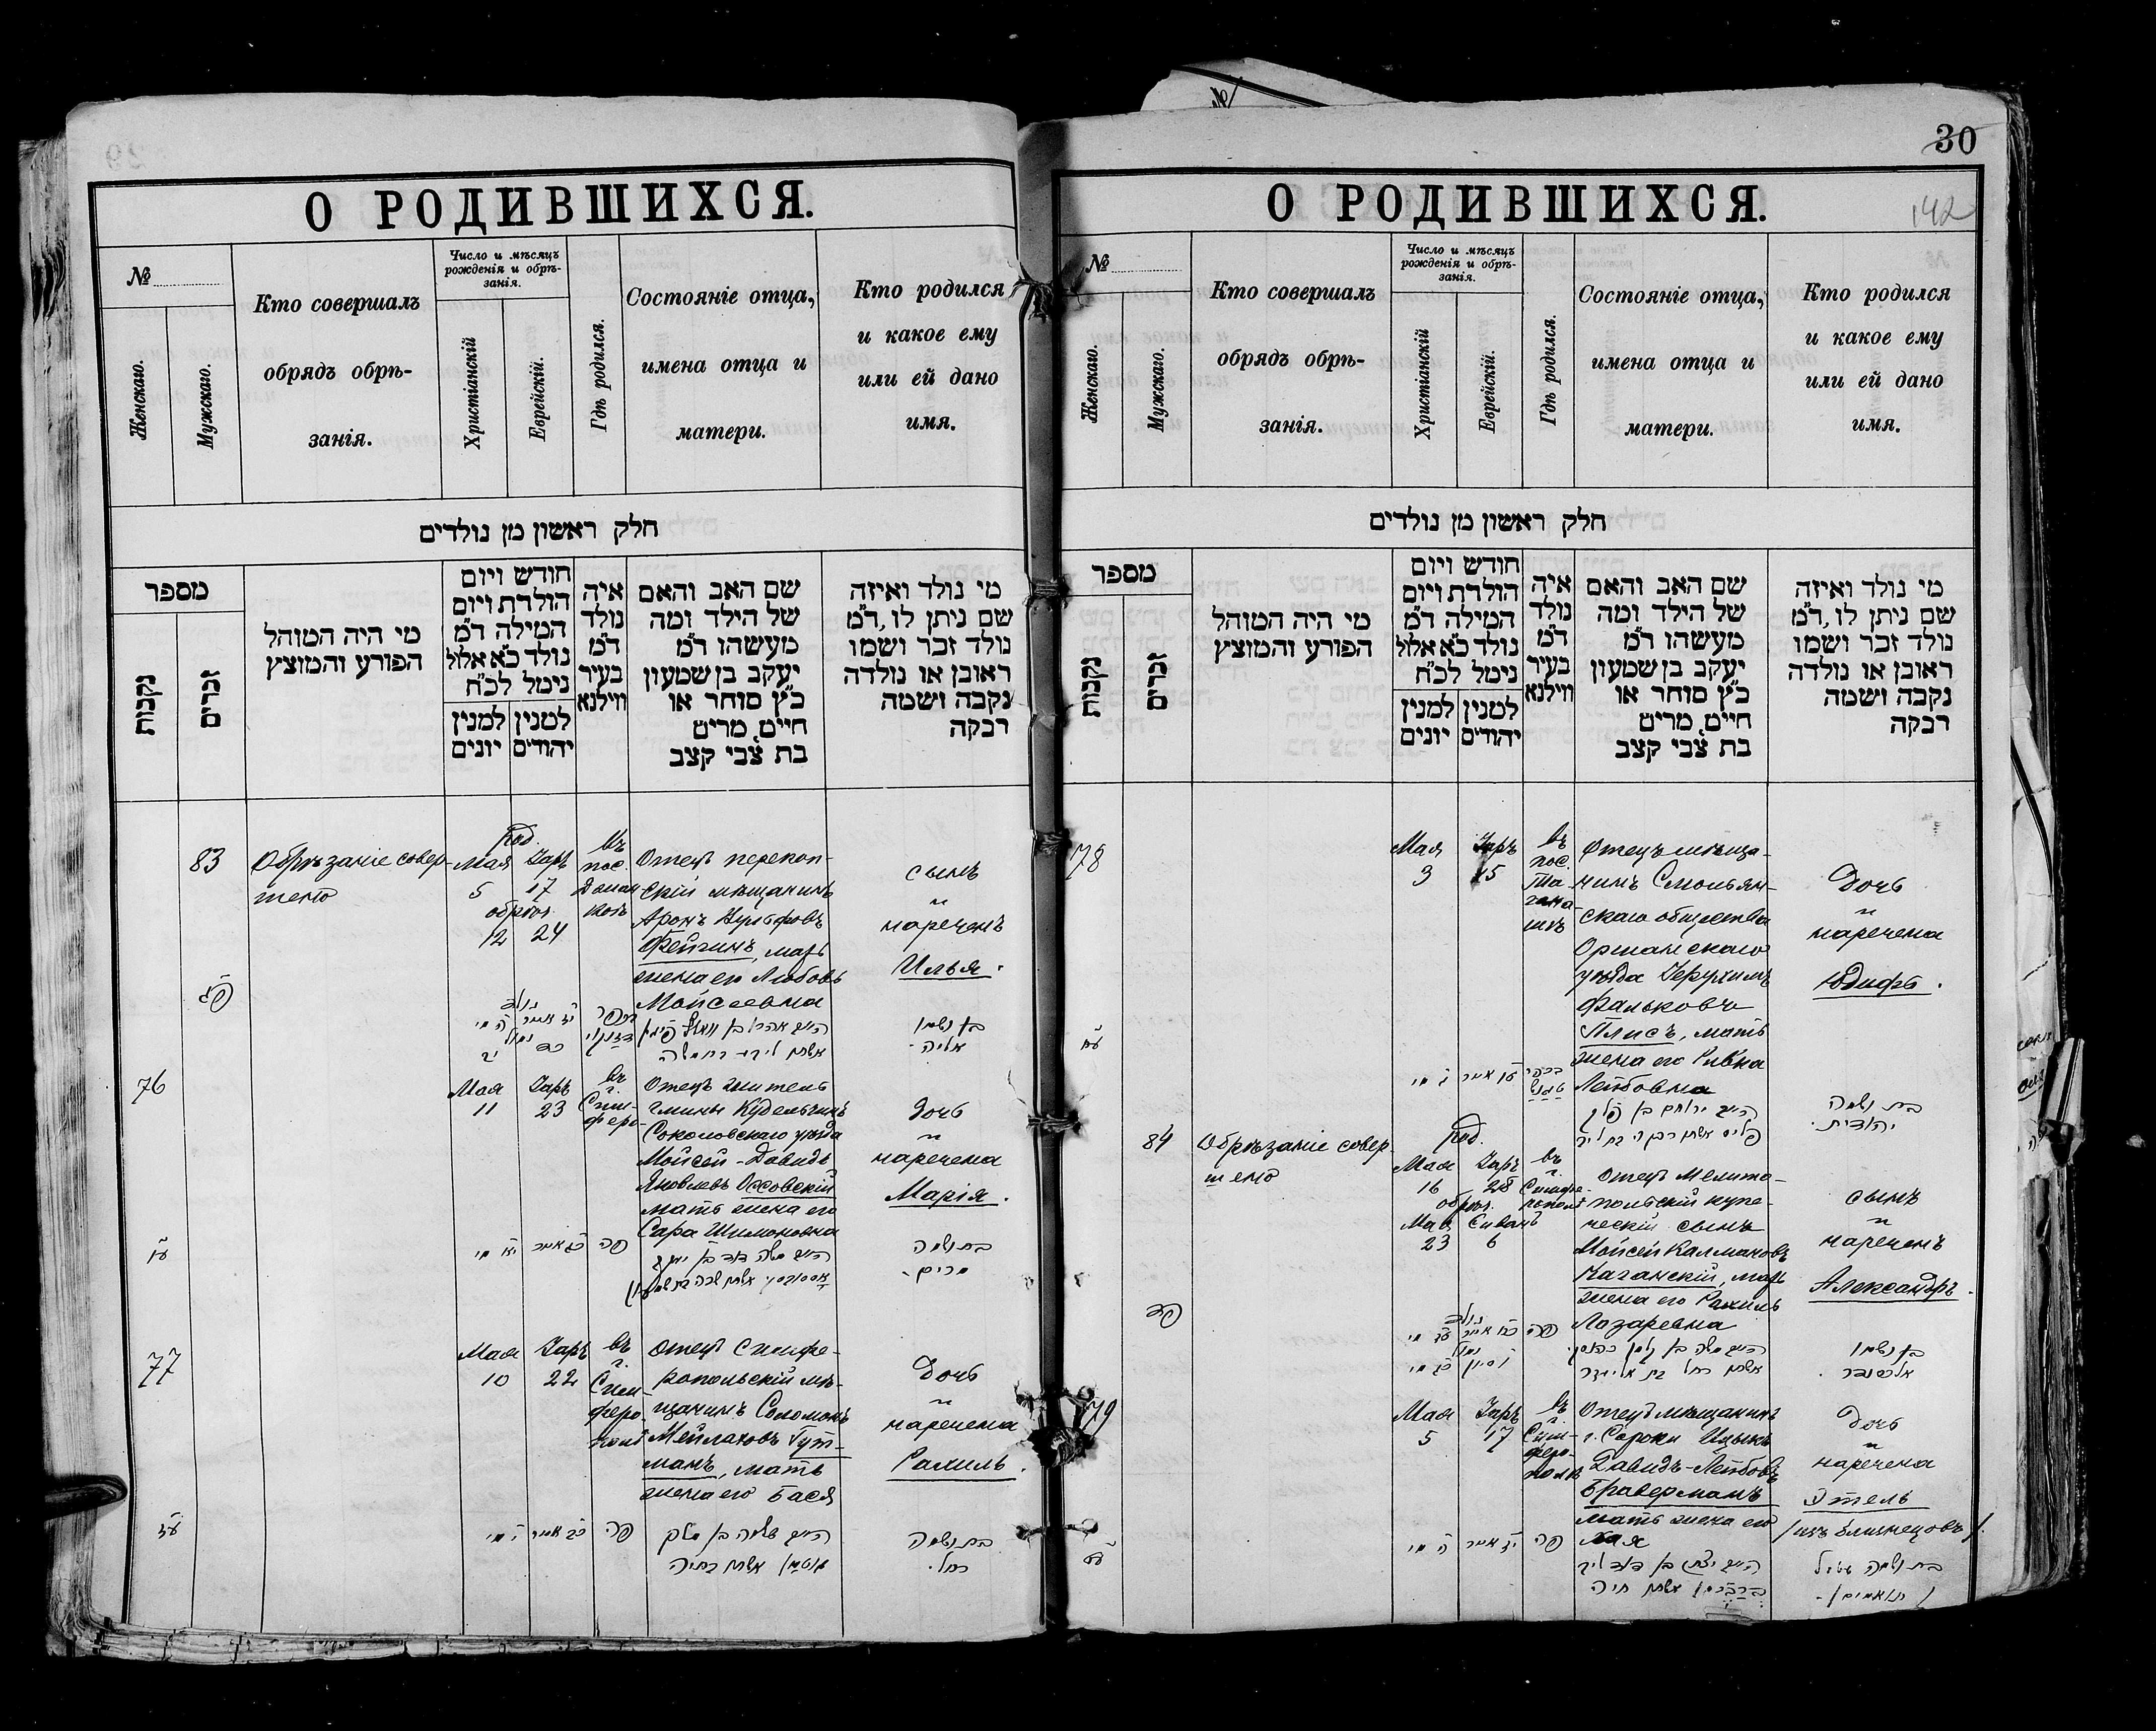 О РОДИВШИХСЯ.
№
Женскаго.
Мужскаго.
Кто совершалъ
обрядъ обрѣ-
занія.
Число и мѣсяцъ
рожденія и обрѣ-
занія.
Христіанскій
Еврейскій.
Гдѣ родился.
Состояніе отца,
имена отца и
матери.
Кто родился
и какое ему
или ей дано
имя.
חלק ראשון מן נולדים
מספר
נקבות
זכרים
מי היה המוהל
הפורע והמוצץ
חודש ויום
הולדת ויום
המילה ד״מ
נולד כ״א אלול
נימל לכ״ח
למנין
יונים
למנין
יהודים
איה
נולד
ד״מ
בעיר
ווילנא
שם האב והאם
של הילד ומה
מעשהו ד״מ
יעקב בן שמעון
כ״ץ סוחר או
חיים, מרים
בת צבי קצב
מי נולד ואיזה
שם ניתן לו, ד״מ
נולד זכר ושמו
ראובן או נולדה
נקבה ושמה
רבקה
83
Обрѣзаніе совер-
шено
Род.
Мая Іаръ
5 17
обрѣз.
12 24
въ
пос.
Джан
кой
Отецъ перекоп-
скій мѣщанинъ
Аронъ Вульфовъ
Фейгинъ, мать
жена его Любовь
Мойсеевна
сынъ
и
нареченъ
Илья.
פג
בן ושמו
אליה.
76
Мая Іаръ
11 23
въ
г.
Сим-
феро-
Отецъ житель
гмины Кудельчинъ
Соколовскаго уѣзда
Мойсей-Давидъ
Яковлевъ Оссовскій
мать жена его
Сара Шимоновна
Дочь
и
наречена
Марія.
עו
פה
בת ושמה
מרים.
77
Мая Іаръ
10 22
въ
г.
Сим-
феро-
поль
Отецъ Симфе-
ропольскій мѣ-
щанинъ Соломонъ
Мейлаховъ Гут-
манъ, мать
жена его Бася
Дочь
и
наречена
Рахиль.
עז
כב אייר י מי
פה
היינו שלמה בן מלך
גוטמן אשתו בתיה
בת ושמה
רחל.
30
142
О РОДИВШИХСЯ.
№
Женскаго.
Мужскаго.
Кто совершалъ
обрядъ обрѣ-
занія.
Число и мѣсяцъ
рожденія и обрѣ-
занія.
Христіанскій
Еврейскій.
Гдѣ родился.
Состояніе отца,
имена отца и
матери.
Кто родился
и какое ему
или ей дано
имя.
חלק ראשון מן נולדים
מספר
נקבות
זכרים
מי היה המוהל
הפורע והמוצץ
חודש ויום
הולדת ויום
המילה ד״מ
נולד כ״א אלול
נימל לכ״ח
למנין
יונים
למנין
יהודים
איה
נולד
ד״מ
בעיר
ווילנא
שם האב והאם
של הילד ומה
מעשהו ד״מ
יעקב בן שמעון
כ״ץ סוחר או
חיים, מרים
בת צבי קצב
מי נולד ואיזה
שם ניתן לו, ד״מ
נולד זכר ושמו
ראובן או נולדה
נקבה ושמה
רבקה
78
Мая Іаръ
3 15
въ
пос.
Отецъ мѣща-
нинъ Смольян-
скаго общества
Оршанскаго
уѣзда Іерухимъ
Фальковъ
Плисъ, мать
жена его Ривка
Лейбовна
Дочь
и
наречена
Юдифь.
עח
בת ושמה
יהודית.
84
Обрѣзаніе совер-
шено
Род.
Мая Іаръ
16 28
обрѣз.
Мая Сиванъ
23 6
въ
г.
Симфе-
рополѣ
Отецъ Мелито-
польскій купе-
ческій сынъ
Мойсей Калмановъ
Каганскій, мать
жена его Рахиль
Лазаревна
сынъ
и
нареченъ
Александръ.
פד
פה
בן ושמו
אלכסנדר.
79
Мая Іаръ
5 17
въ
г.
Сим-
феро-
поль
Отецъ мѣщанинъ
г. Сороки Ицыкъ
Давидъ-Лейбовъ
Браверманъ
мать жена его
Хая
Дочь
и
наречена
Этель
/изъ близнецовъ/.
עט
יז אייר ה מי
פה
בת ושמה עטיל
/תואמים/.